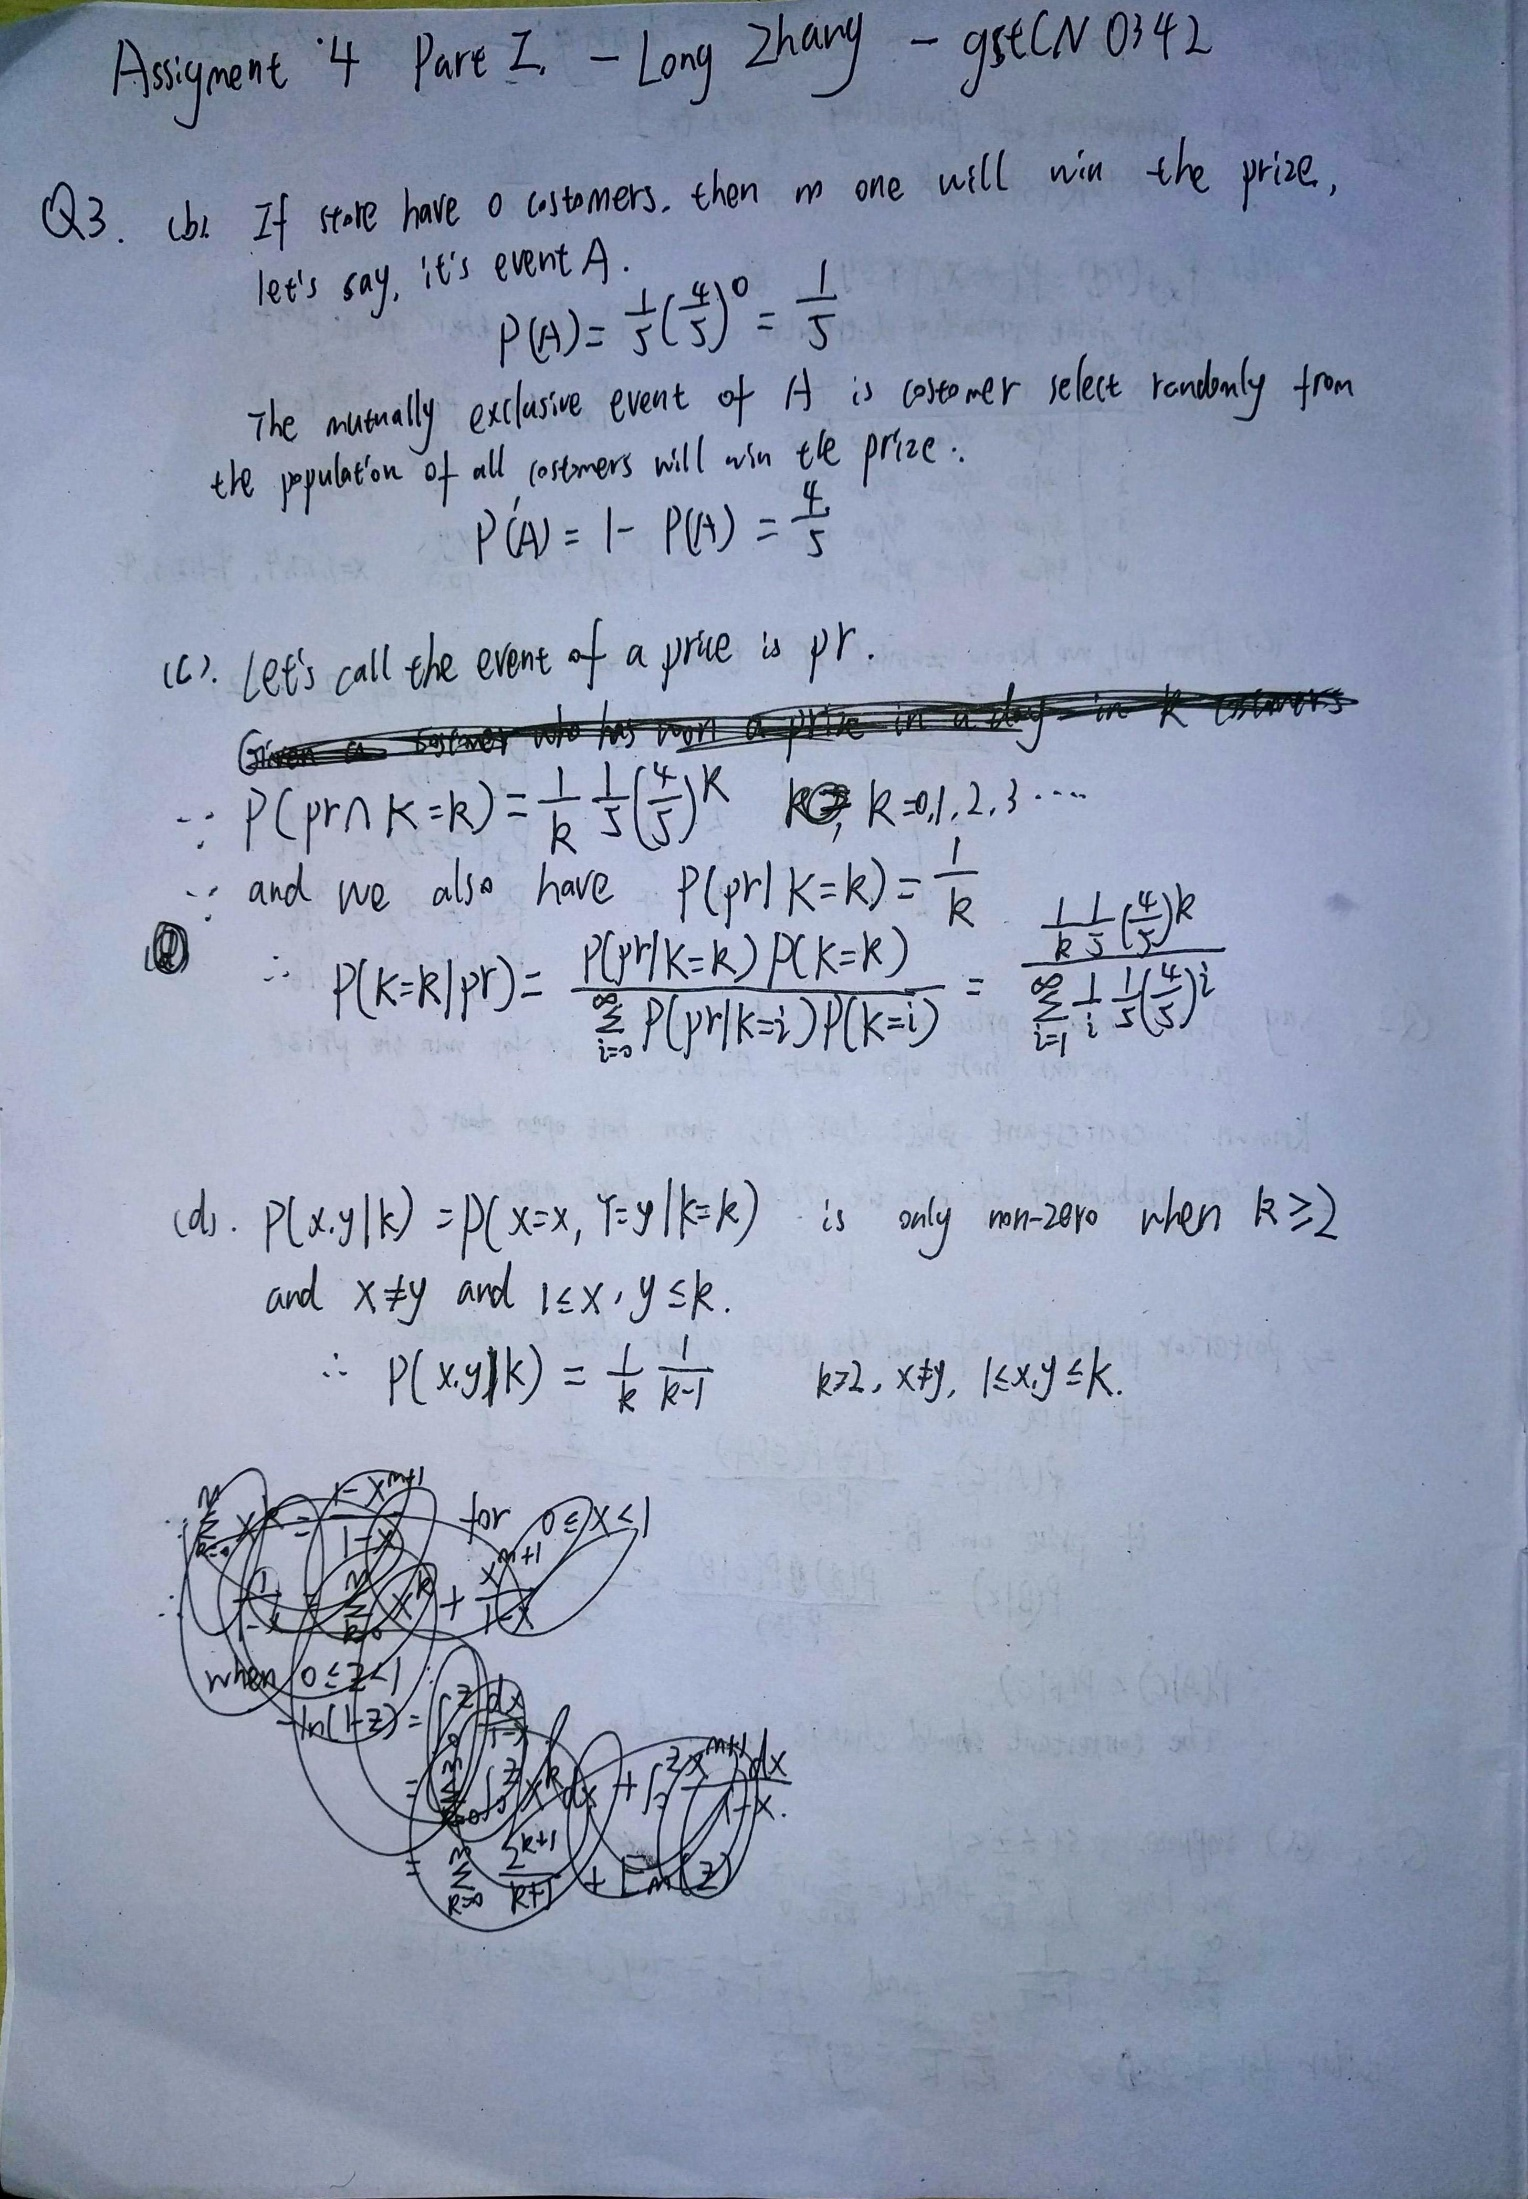 Assigment 4 Part I. - Long Zhang - gstCN 0342
Q3. (b). If store have 0 costomers. then no one will win the prize,
let's say, it's event A.
P(A) = 1/5 (4/5)^0 = 1/5
The mutually exclusive event of A is costomer select randomly from
the population of all costomers will win the prize.
P'(A) = 1 - P(A) = 4/5
(c). Let's call the event of a price is pr.
Given a costomer who has won a prize in a day in k costomers
∵ P(pr∩K=k) = 1/k 1/5 (4/5)^k k=0,1,2,3....
∵ and we also have P(pr|K=k) = 1/k
∴ P(K=k|pr) = P(pr|K=k)P(K=k) / ∑_{i=0}^∞ P(pr|k=i)P(k=i) = 1/k 1/5 (4/5)^k / ∑_{i=1}^∞ 1/i 1/5 (4/5)^i
(d). P(x.y|k) = P(X=x, Y=y|k=k) is only non-zero when k≥2
and x≠y and 1≤x,y≤k.
∴ P(x.y|k) = 1/k 1/k-1 k≥2, x≠y, 1≤x,y≤k.
∵ ∑_{k=0}^m x^k = 1-x^{m+1} / 1-x for 0≤x<1
∴ 1/1-x = ∑_{k=0}^m x^k + x^{m+1}/1-x
when 0≤z<1 :
-ln(1-z) = ∫_0^z dx/1-x
= ∑_{k=0}^m ∫_0^z x^k dx + ∫_0^z x^{m+1} dx / 1-x.
= ∑_{k=0}^m z^{k+1}/k+1 + E_m(z)